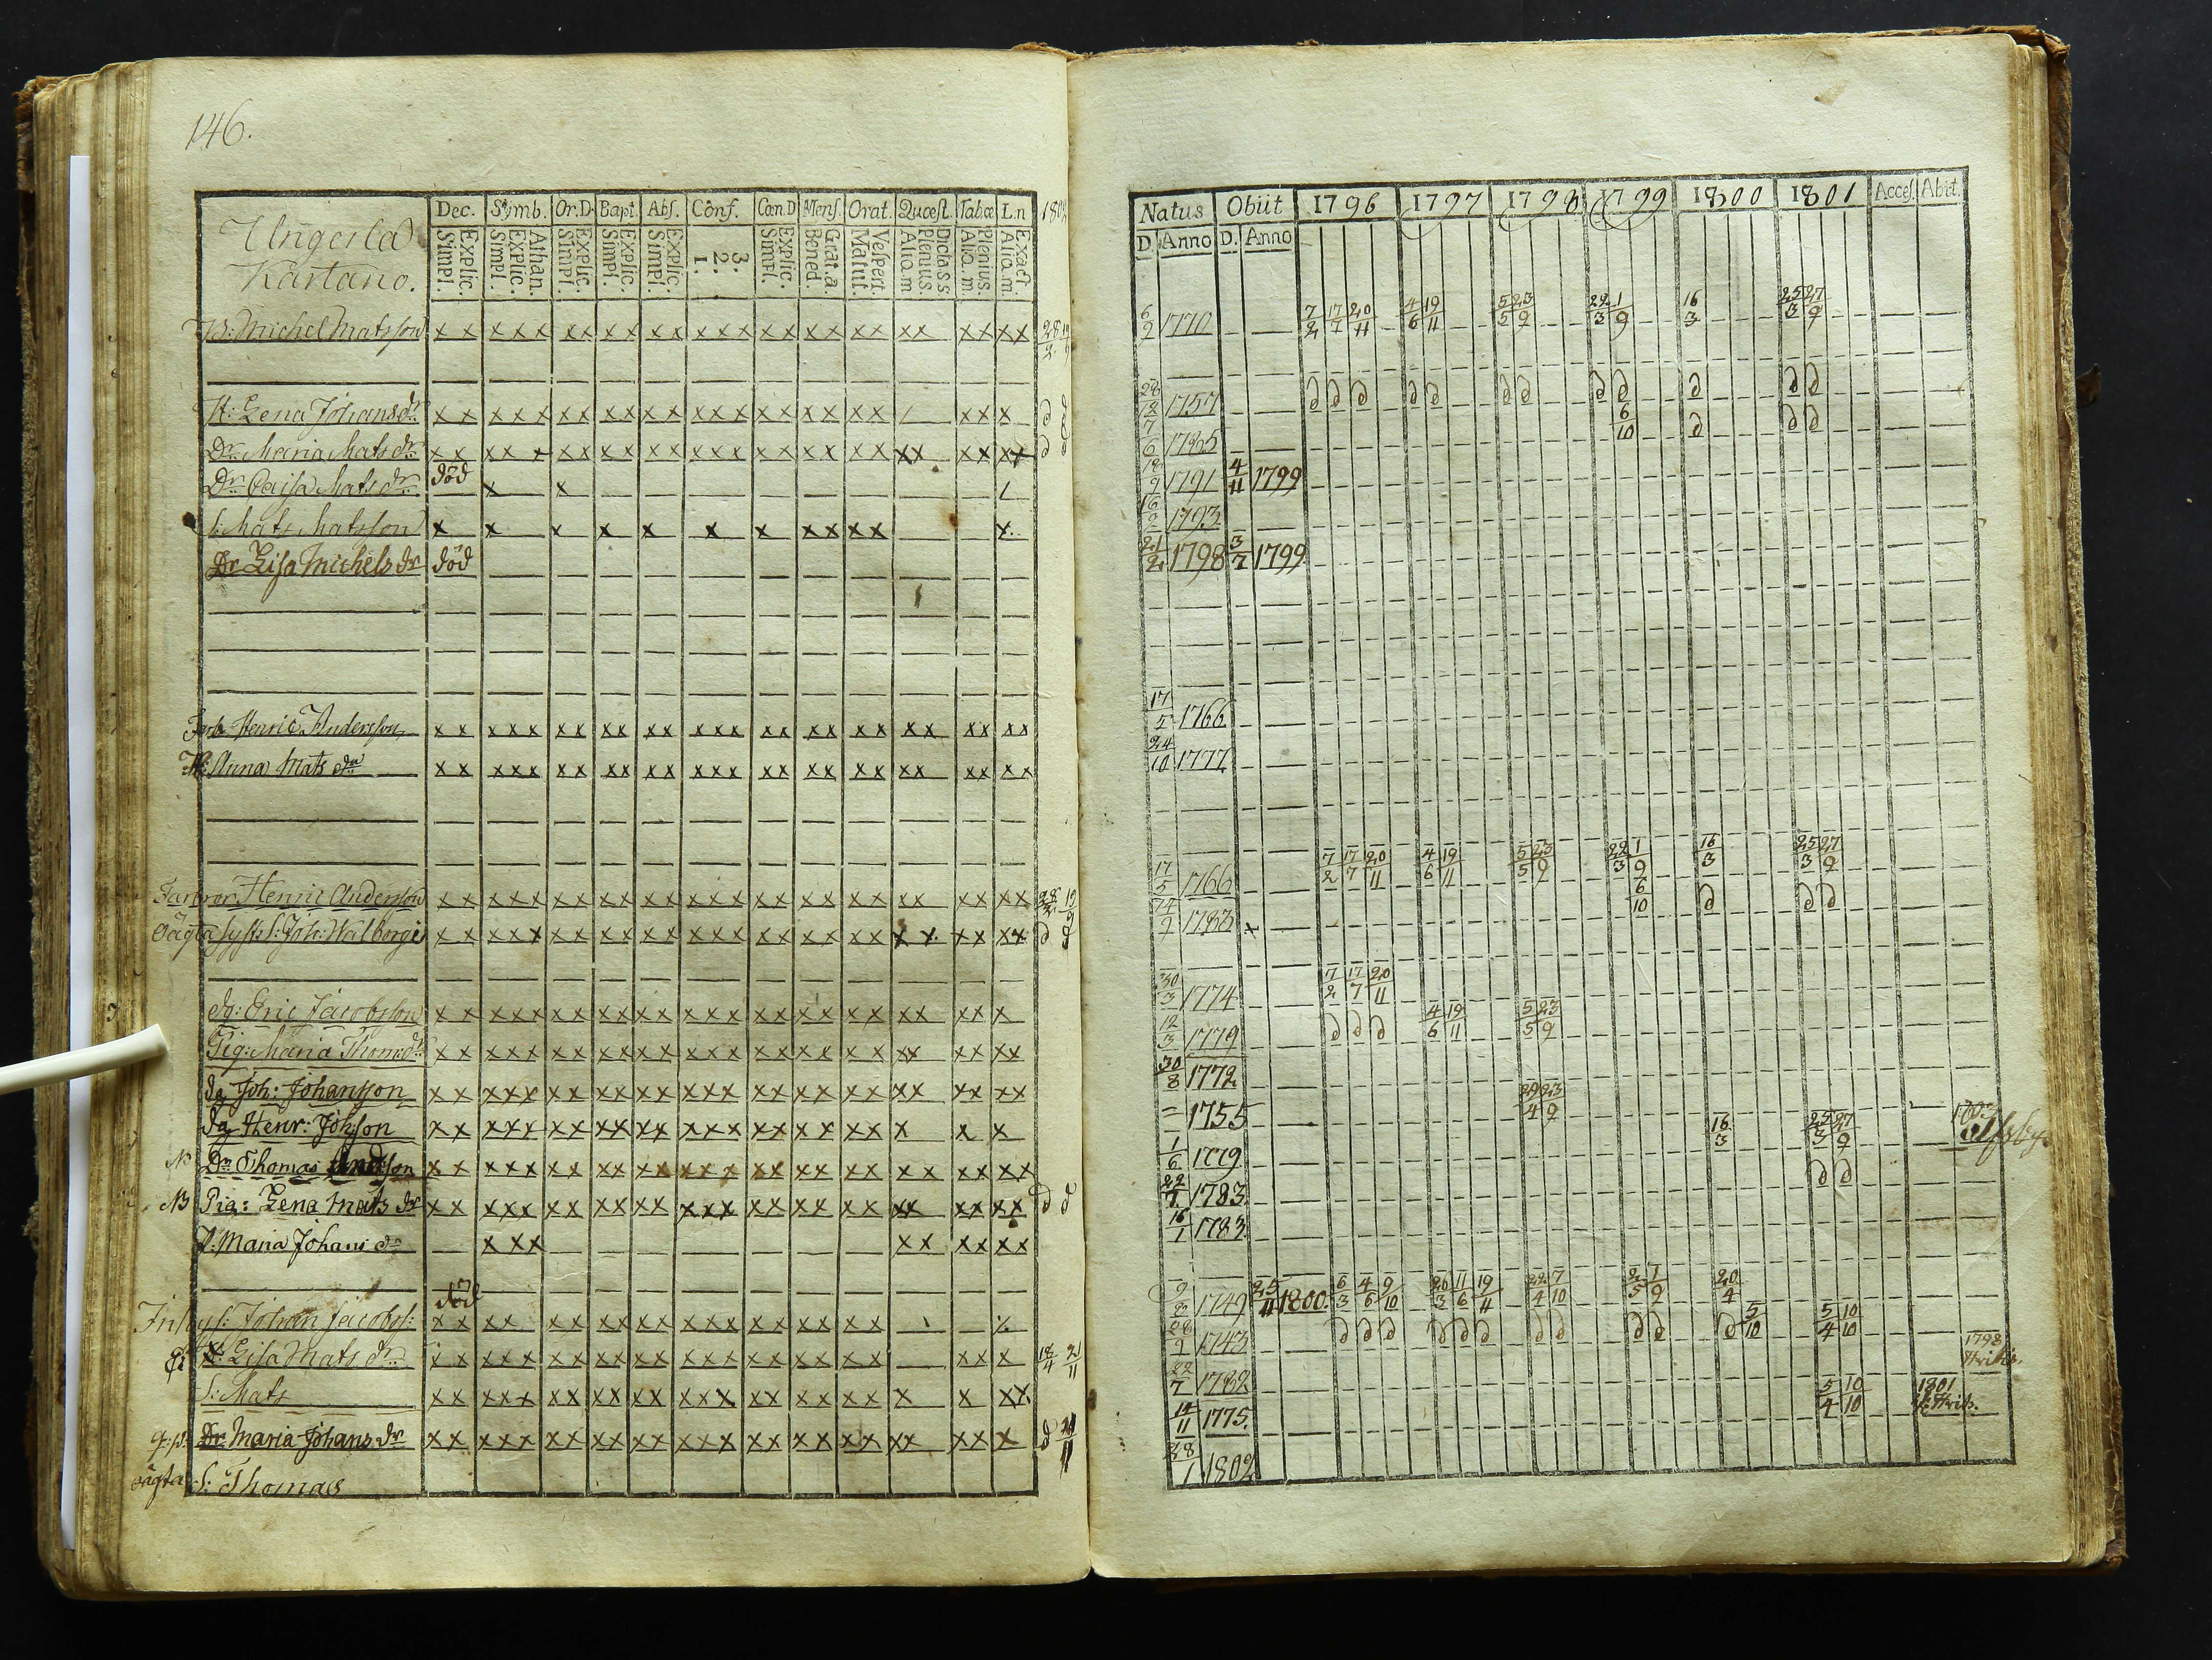 146.
Dec. Symb. Or.D. Bapt. Abs. Conf. Cœn.D Mens. Orat. Quæst. Tabæ L.n 1803
Explic. Simpl. Athan. Explic. Simpl. Explic. Simpl. Explic. Simpl. Explic. Simpl. 3. 2. 1. Explic. Simpl. Grat.a. Bened. Vespert. Matut. Dicta S.S. Plenius. Aliq.m Plenius. Aliq.m Exact. Aliq.m.
Ungerla
Kartano.
B: Michel Matsson x x x x x x x x x x x x x x x x x x x x x x x x x x x
H: Lena Johansdr x x x x x x x x x x x x x x x x x x x x / x x x x
Dr. Maria Matsdr x x x x x x x x x x x x x x x x x x x x x x x x x x
Dr. Caisa Matsdr död x x /
S: Mats Matsson x x x x x x x x x x x x.
Dr Lisa Michelsdr död
Henric Andersson x x x x x x x x x x x x x x x x x x x x x x x x x x
H: Anna Matsdr x x x x x x x x x x x x x x x x x x x x x x x x x x
Henric Andersson x x x x x x x x x x x x x x x x x x x x x x x x x x
Oägta Joh: Walborgs x x x x x x x x x x x x x x x x x x x x x x. x x x x
dg: Eric Jacobsson x x x x x x x x x x x x x x x x x x x x x x x x x
Pig: Maria Thomædr x x x x x x x x x x x x x x x x x x x x x x x x x x
dg Joh: Johansson x x x x x x x x x x x x x x x x x x x x x x x x x x
dg Henr: Johsson x x x x x x x x x x x x x x x x x x x x x x x
Dr. Thomas Andsson x x x x x x x x x x x x x x x x x x x x x x x x x x
NB Pig: Lena Matsdr x x x x x x x x x x x x x x x x x x x x x x x x x x
P: Maria Johansdr x x x x x x x x x
död
Inhys: Johan Jacobss: x x x x x x x x x x x x x x x x x x x x
Lisa Matsdr x x x x x x x x x x x x x x x x x x x x x x x x
S: Mats x x x x x x x x x x x x x x x x x x x x x x x x
Dr Maria Johansdr x x x x x x x x x x x x x x x x x x x x x x x x x x
oägta S: Thomas
Natus Obiit 1796 1797 1798 1799 1800 1801 Access. Abit.
D. Anno D. Anno
6/2 1770 7/2 17/7 20/11 4/6 19/11 5/5 23/9 22/3 1/9 16/3 25/3 27/9
1757 d d d d d d d d d d d d
1765 6/10 d d d
1791 4/11 1799
16/2 1793
21/2 1798 3/7 1799
17/5 1766
24/10 1777
17/5 1766 7/2 17/7 20/11 4/6 19/11 5/5 23/9 22/3 1/9 16/3 25/3 27/9
14/9 1783 x 6/10 d d d
30/3 1774 7/2 17/7 20/11
12/3 1779 d d d 4/6 19/11 5/5 23/9
30/8 1772
= 1755 29/4 23/9
1/6 1779 16/3 25/3 27/9 1803
22/7 1783 d d
16/1 1783
1749 25/11 1800. 6/3 4/6 9/10 20/3 11/6 19/11 22/4 7/10 2/5 1/9 20/4
1743 d d d d d d d d d d d 5/10 5/4 10/10
22/7 1782 1798
14/11 1775. 5/4 10/10 1801
28/1 1802